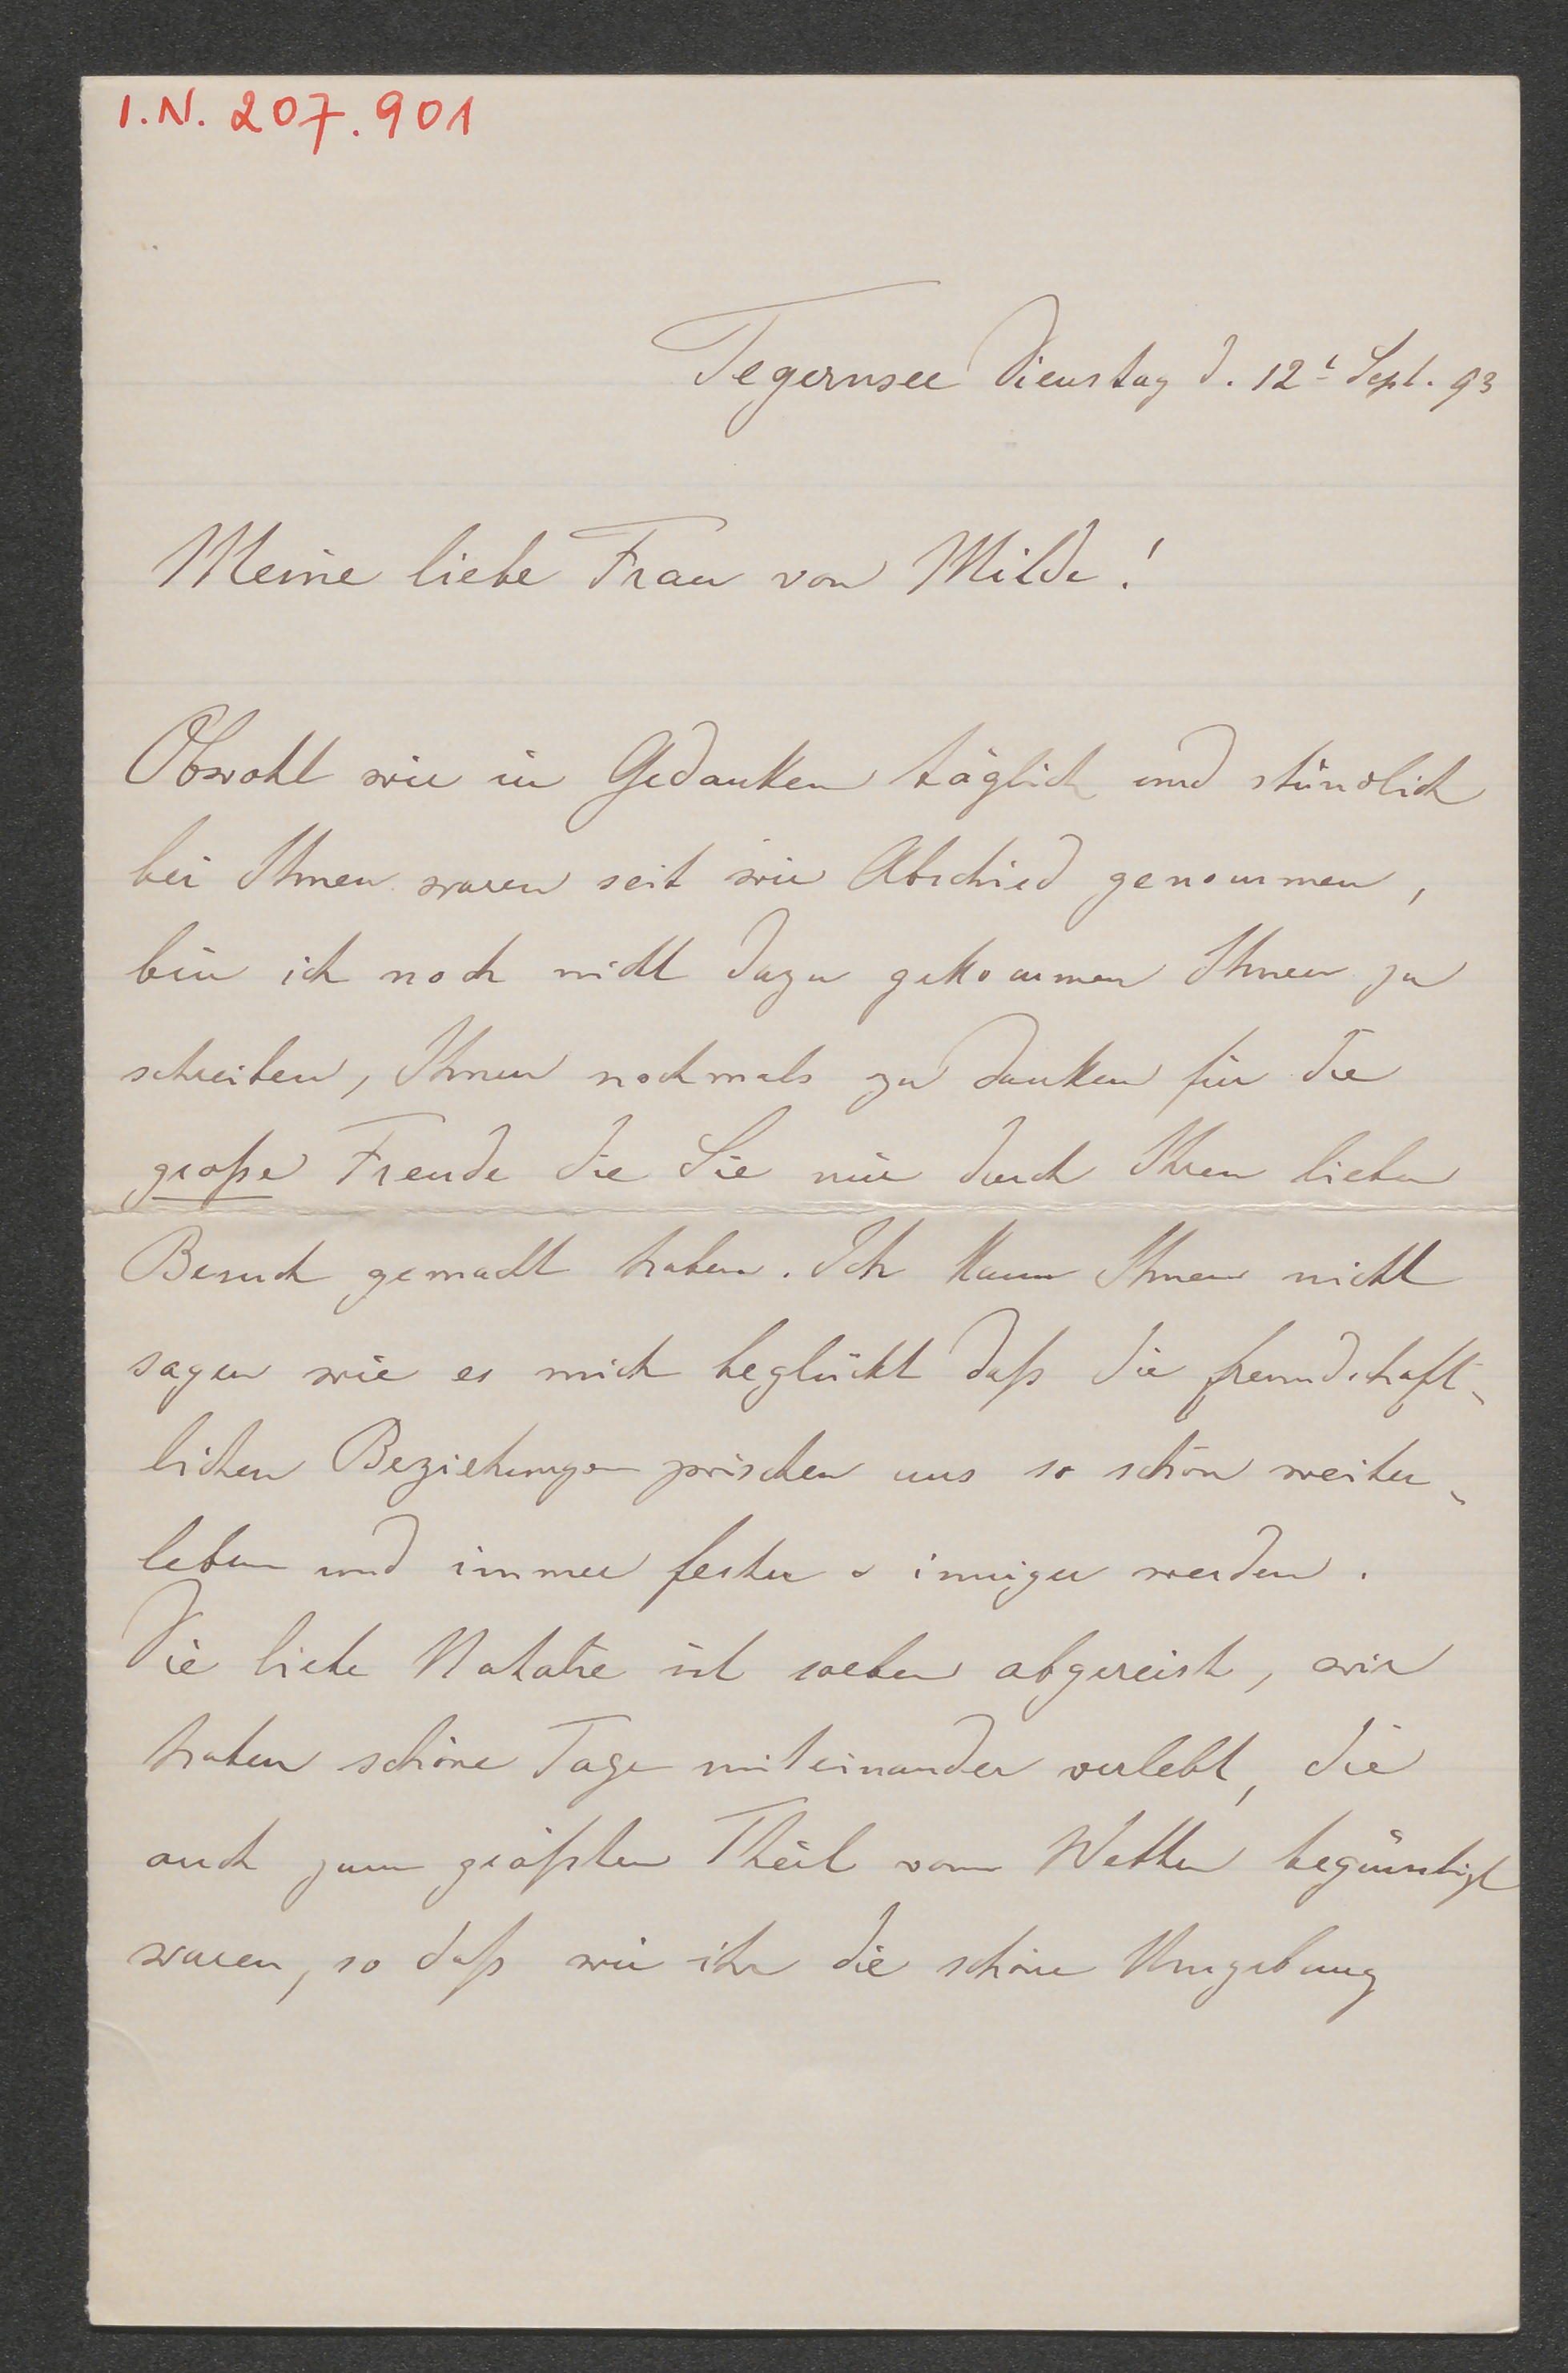 I.N. 207.901
Tegernsee Dienstag d. 12t Sept. 93
Meine liebe Frau von Milde!
Obwohl wir in Gedanken täglich und stündlich
bei Ihnen waren seit wir Abschied genommen,
bin ich noch nicht dazu gekommen Ihnen zu
schreiben, Ihnen nochmals zu danken für die
große Freude die Sie mir durch Ihren lieben
Besuch gemacht haben. Ich kann Ihnen nicht
sagen wie es mich beglückt daß die freundschaft-
lichen Beziehungen zwischen uns so schön weiter-
leben und immer fester & inniger werden.
Die liebe Natalie ist soeben abgereist, wir
haben schöne Tage miteinander verlebt, die
auch zum größten Theil vom Wetter begünstigt
waren, so daß wir ihr die schöne Umgebung